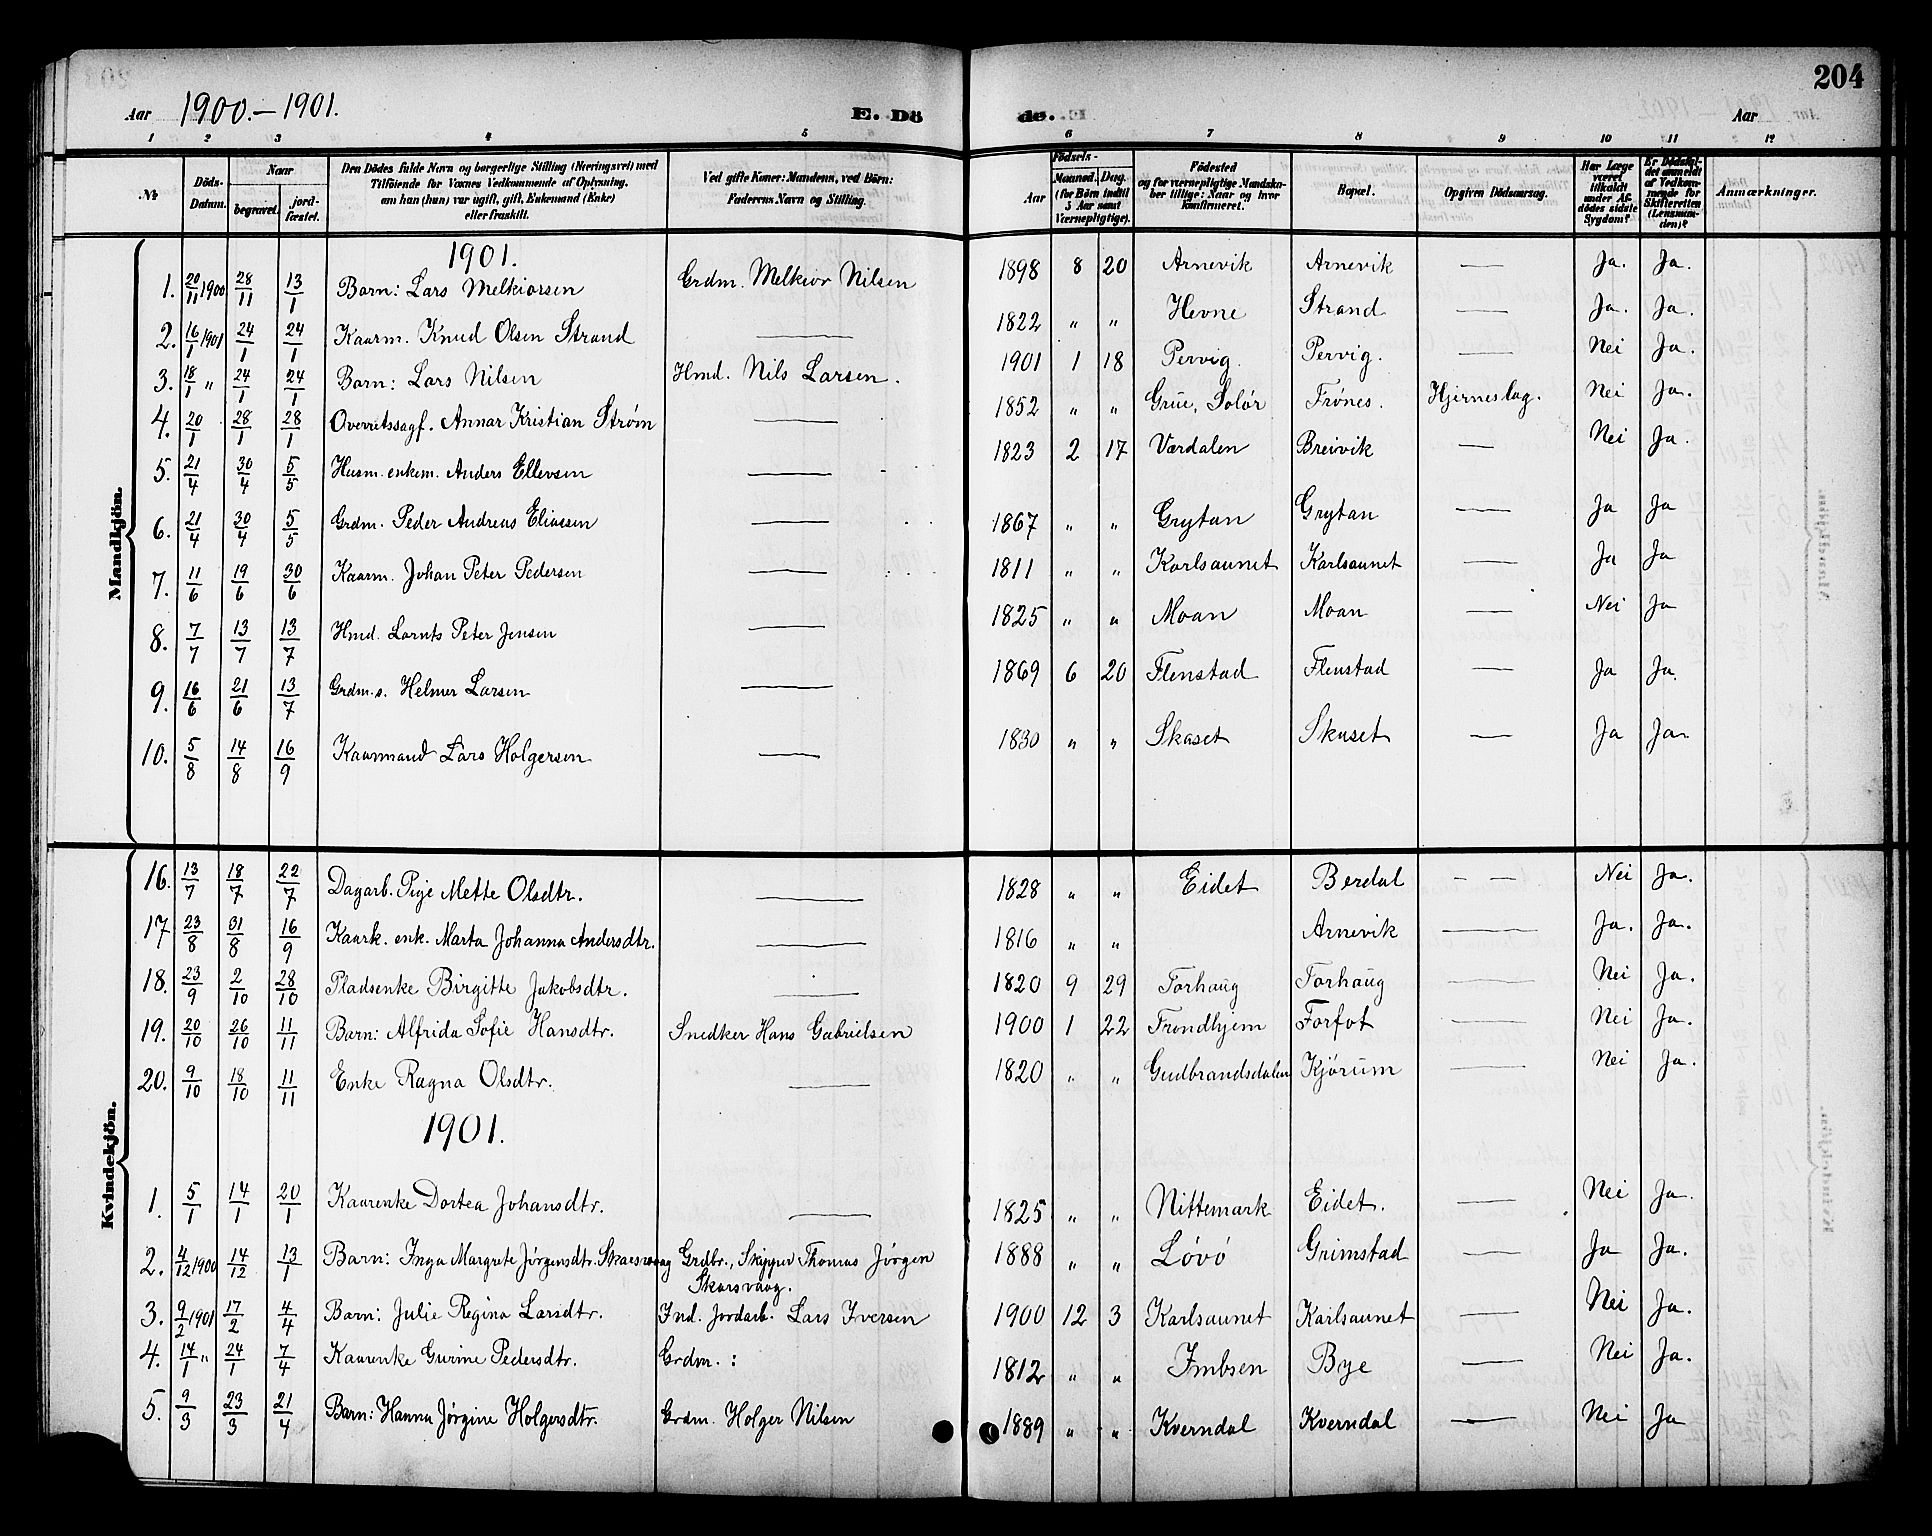 204
Aar 1900.-1901. E. Döde. Aar
1 2 3 4 5 6 7 8 9 10 11 12
№ Döds-Datum. Naar begravet. jordfæstet. Den Dödes fulde Navn og borgerlige Stilling (Næringsvei) med Tilföiende for Voxnes Vedkommende af Oplysning, om han (hun) var ugift, gift, Enkemand (Enke) eller fraskilt. Ved gifte Koner: Mandens, ved Börn: Faderens Navn og Stilling. Födsels- Aar Maaned. Dag. (for Börn indtil 3 Aar samt Værnepligtige). Födested og for værnepligtige Mandskaber tillige: Naar og hvor konfirmeret. Bopæl. Opgiven Dödsaarsag. Har Læge været tilkaldt under Afdödes sidste Sygdom? Er Dödsfaldet anmeldt af Vedkommende for Skifteretten (Lensmanden)? Anmærkninger.
Mandkjön.
1901.
1. 20/11 1900 28/11 13/1 Barn: Lars Melkiorsen Grdm. Melkior Nilsen 1898 8 20 Arnevik Arnevik — Ja. Ja.
2. 16/1 1901 24/1 24/1 Kaarm. Knud Olsen Strand — 1822 " " Hevne Strand — Ja. Ja.
3. 18/1 " 24/1 24/1 Barn: Lars Nilsen Hmd. Nils Larsen. 1901 1 18 Pervig. Pervig. — Nei Ja.
4. 20/1 28/1 28/1 Overretssagf. Annar Kristian Strøm — 1852 " " Grue, Solør Frønes. Hjerneslag. Nei Ja.
5. 21/4 30/4 5/5 Husm. enkem. Anders Ellevsen — 1823 2 17 Værdalen Breivik — Nei Ja.
6. 21/4 30/4 5/5 Grdm. Peder Andreas Eliasen — 1867 " " Grytan Grytan — Ja Ja
7. 11/6 19/6 30/6 Kaarm. Johan Peter Pedersen — 1811 " " Karlsaunet Karlsaunet — Ja Ja
8. 7/7 13/7 13/7 Hmd. Lornts Peter Jensen — 1825 " " Moan Moan — Nei Ja
9. 16/6 21/6 13/7 Grdm. s. Helmer Larsen — 1869 6 20 Flenstad Flenstad — Ja Ja.
10. 5/8 14/8 16/9 Kaarmand Lars Holgersen — 1830 " " Skaset Skaset — Ja Ja.
Kvindekjön.
16. 13/7 18/7 22/7 Dagarb. Pige Mette Olsdtr. — 1828 " " Eidet Berdal — — Nei Ja.
17 23/8 31/8 16/9 Kaark. enk. Marta Johanna Andersdtr. — 1816 " " Arnevik — Ja. Ja.
18. 23/9 2/10 28/10 Pladsenke Birgitte Jakobsdtr. — 1820 9 29 Forhaug Forhaug — Nei Ja.
19. 20/10 26/10 11/11 Barn: Alfrida Sofie Hansdtr. Snedker Hans Gabrielsen 1900 1 22 Trondhjem Forfot — Nei Ja.
20. 9/10 18/10 11/11 Enke Ragna Olsdtr. — 1820 " " Gudbrandsdalen Kjørum — Nei Ja.
1901.
1. 5/1 14/1 20/1 Kaarenke Dortea Johansdtr. — 1825 " " Nittemark Eidet. — Nei Ja.
2. 4/12 1900 14/12 13/1 Barn: Inga Margrete Jørgensdtr. Skarsvaag Grdbr., Skipper Thomas Jørgen 1888 " " Løvø Grimstad — Ja Ja.
Skarsvaag.
3. 9/2 1901 17/2 4/4 Barn: Julie Regina Larsdtr. Ind. Jordarb. Lars Iversen 1900 12 3 Karlsaunet Karlsaunet — Nei Ja.
4. 14/1 " 24/1 7/4 Kaarenke Gurine Pedersdtr. Grdm. : 1812 " " Imbsen Bye — Nei Ja.
5. 9/3 23/3 21/4 Barn: Hanna Jørgine Holgersdtr. Grdm. Holger Nilsen 1889 " " Kverndal Kverndal — Nei Ja